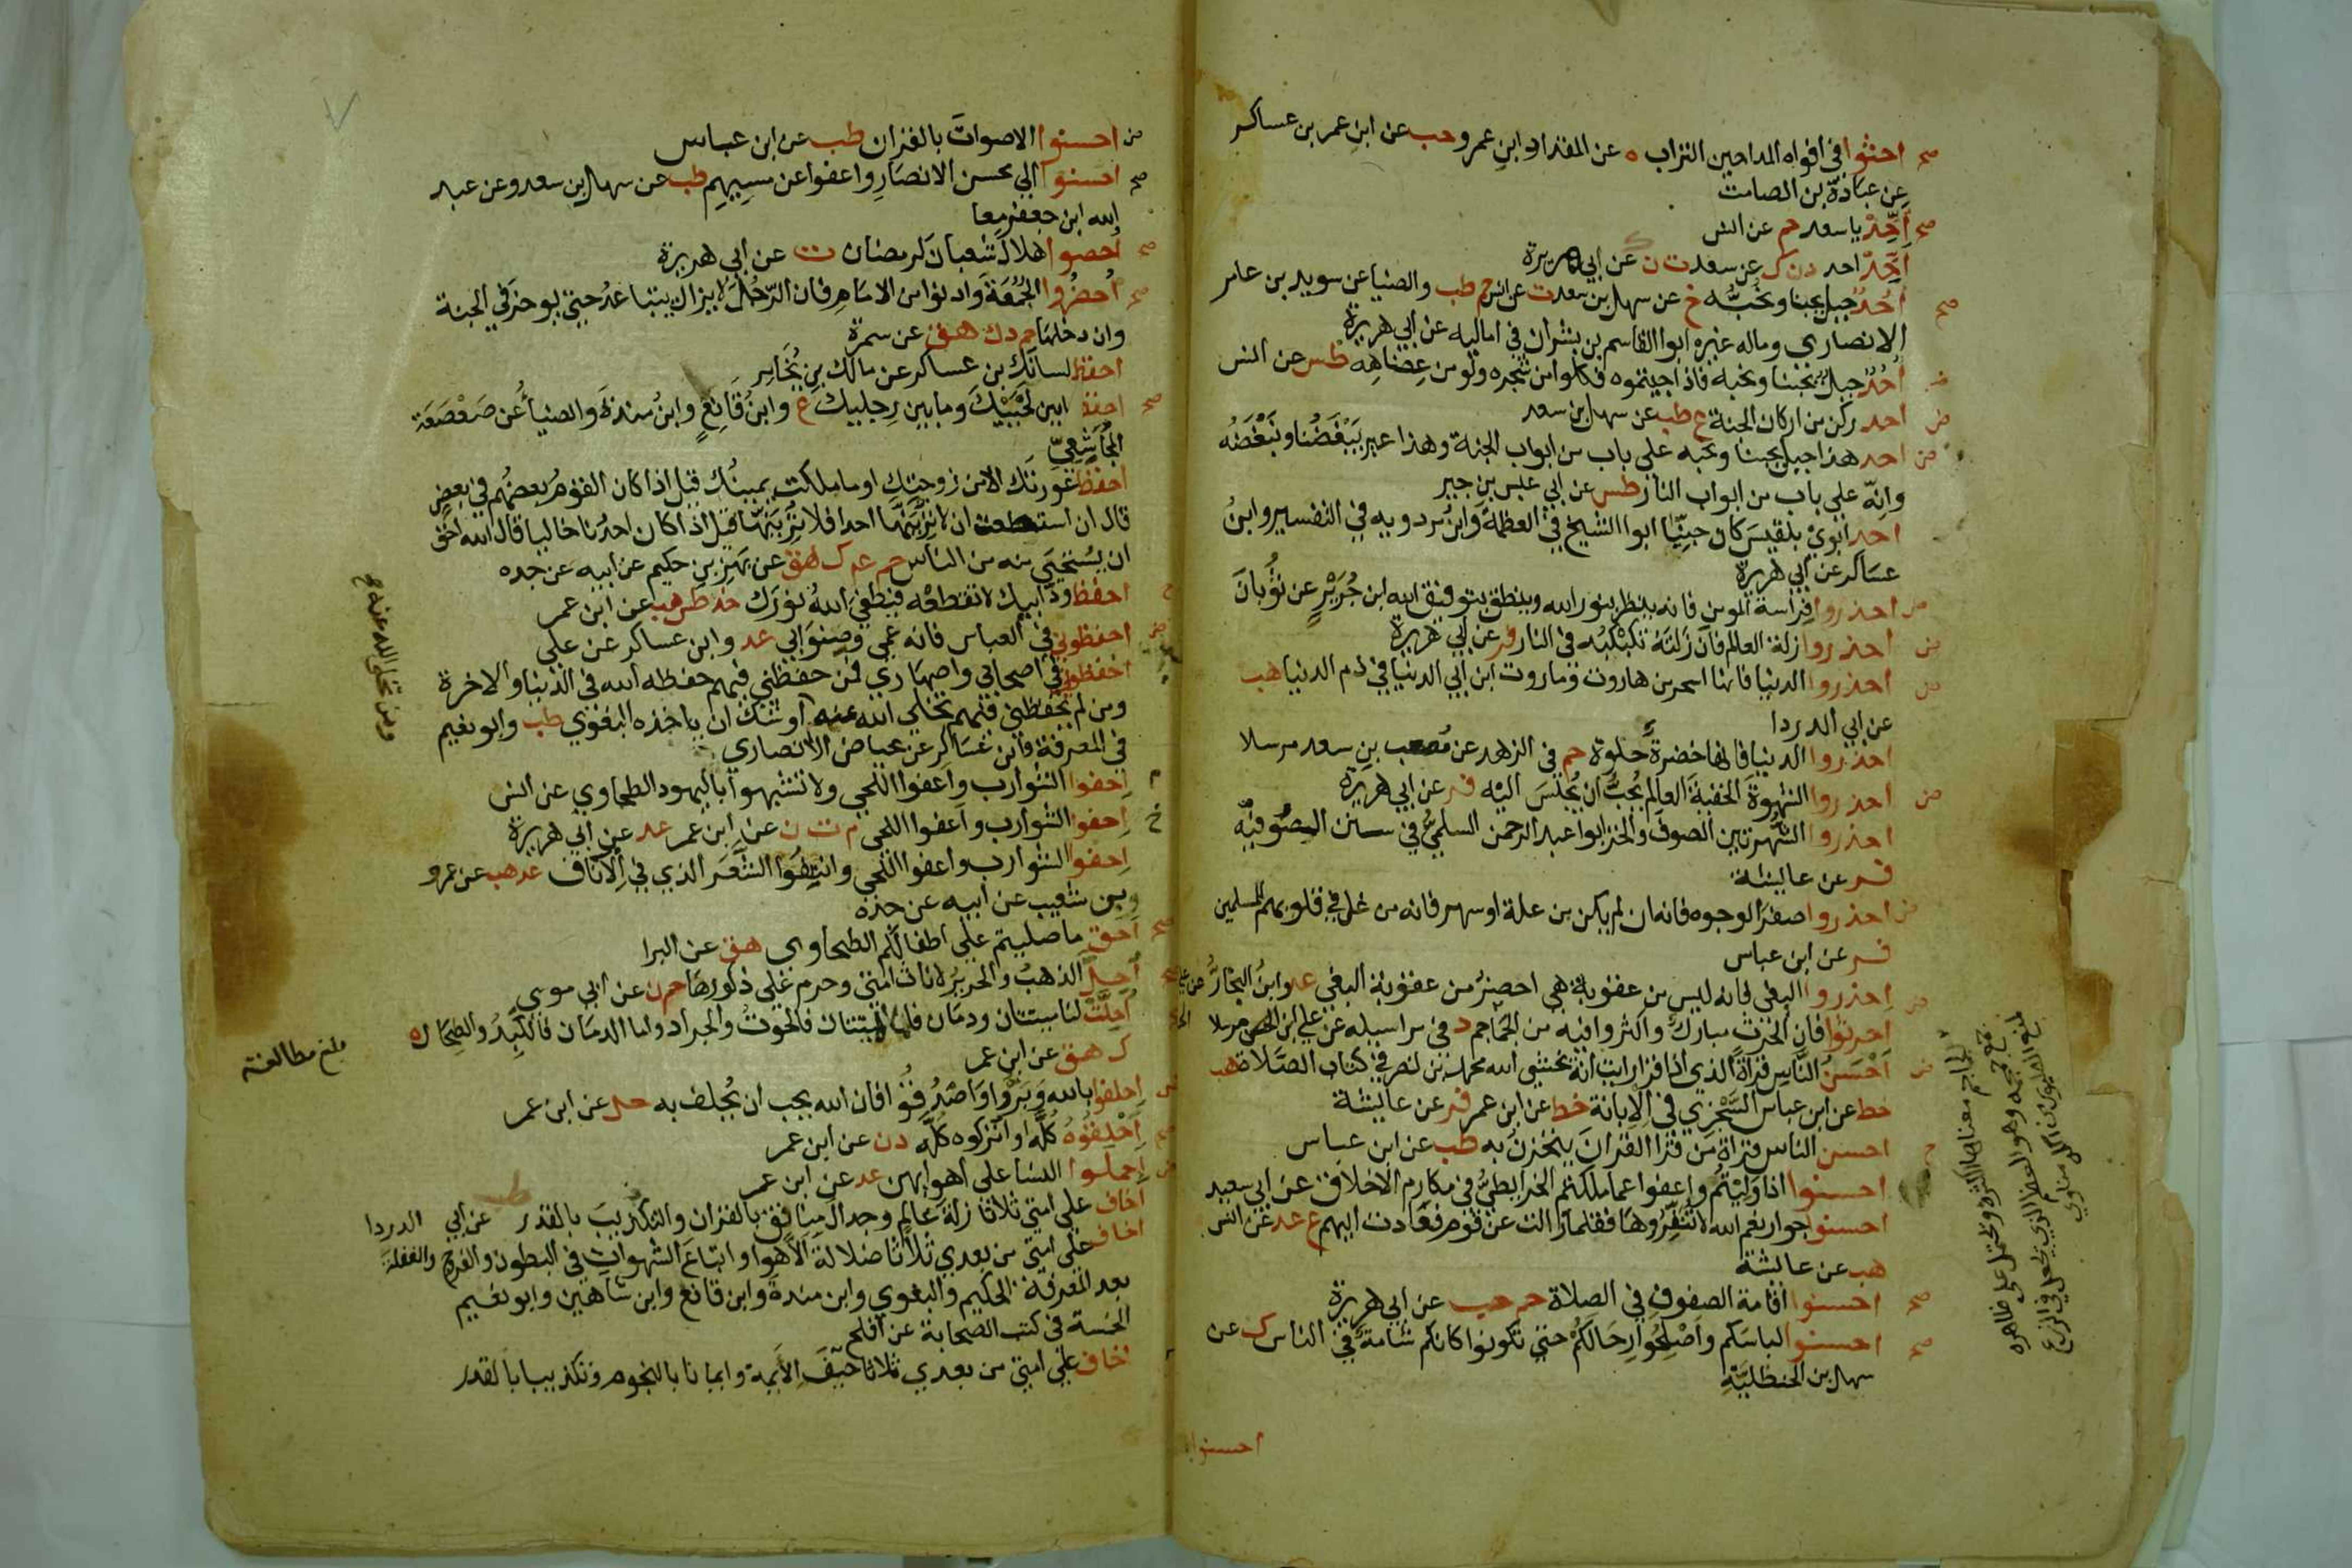 صح احثوا في افواه المداحين التراب ه عن المقداد وابنِ عمرو حب عن ابنِ عمر بن عساكر
عن عبادة بن الصامت
صح أَحِّدْ يا سعد حم عن انس
أَحِّدْ احد د ن ك عن سعد ت ن عن ابي هريرة
صح أُحُدٌ جبل يحبنا ونحبُّه خ عن سهل بن سعد ت عن انس حم طب والضيا عن سويد بن عامر
الانصاري وماله غيره ابوا القاسم بن بشران في اماليه عن ابي هريرة
ض أُحُدٌ جبل يحبنا ونحبه فاذا جيتموه فكلوا من شجره ولو من عِضَاهِه طس عن انس
ض احد ركن من اركان الجنة ع طب عن سهل بن سعد
ض احد هذا جبل يحبنا ونحبه على باب من ابواب الجنة وهذا عير يَبْغَضُنا ونَبْغَضُه
وانّه علي باب من ابواب النار طس عن ابي عبس بن جبر
احد ابوَيْ بلقيسَ كان جِنِّيًّا ابوا الشيخ في العظمة وابنُ مردويه في التفسير وابنُ
عساكر عن ابي هريرة
ض احذروا فِراسةَ المومن فانه ينظر بنور الله وينطق بتوفيق الله ابن جُرَيْرٍ عن ثَوْبانَ
ض احذروا زلة العالم فان زلته تكبكبُه في النار فر عن ابي هريرة
ض احذروا الدنيا فانها اسحر من هاروت وماروت ابن ابي الدنيا في ذم الدنيا هب
عن ابي الدردا
احذروا الدنيا فانها خضرةٌ حلوة حم في الزهد عن مُصعب بن سعد مرسلا
ض احذروا الشهوةَ الخفيةَ العالم يُحِبُّ ان يُجْلَسَ اليه فر عن ابي هريرة
احذروا الشهرتين الصوفَ والخز ابوا عبد الرحمن السلميُّ في سنن الصُّوفيِّة
فر عن عايشة
ض احذروا صفرَ الوجوه فانه ان لم يكن من علة او سهر فانه من غل في قلوبهم للمسلمين
فر عن ابن عباس
ض احذروا البغي فانه ليس من عقوبةٍ هي احضرُ من عقوبة البغي عد وابنُ النجارُ عن علي
احرثوا فان الحرث مباركٌ واكثروا فيه من الجَمَاجم د في مراسيله عن علي ابن الحسين مرسلا
ض أَحْسَنُ النَّاسِ قراةً الذي اذا قرا رايت انَّه يخشى الله محمد بن نصر في كتاب الصَّلاة هب
خط عن ابن عباس السَّجْزي في الابانة خط عن ابن عمر فر عن عايشة
ح احسن الناس قراةً من قرا القرانَ يتحزنُ به طب عن ابن عباس
احسنوا اذا وَلِيْتُم واعفوا عما ملكتم الخرايطيُّ في مكارِم الاخلاق عن ابي سعيد
احسنوا جوار نعم الله لا تُنَفِّرُوها فقلما زالت عن قوم فعادت اليهم ع عد عن انس
هب عن عائشة
صح احسنوا اقامة الصفوف في الصلاة حم حب عن ابي هريرة
صح احسنوا لباسَكم واَصْلِحُوا رِحَالَكُمْ حتى تكونوا كانكم شامةٌ في الناس ك عن
سهل بن الحنظليَّةِ
احسنوا
الجماجم معناها البذر ويحتمل علي ظاهره
جمع جمجمة وهو العظم الذي يجعل في الزرع
ض احسنوا الاصواتَ بالقران طب عن ابن عباس
صح احسنوا الي محسن الانصَارِ واعفوا عن مسِيهِم طب عن سهل بن سعد وعن عبد
الله ابن جعفر معا
صح احصوا هلالَ شعبانَ لرمضان ت عن ابي هريرة
صح اُحضُروا الجُمُعَةَ وادنوا من الامَامِ فان الرَّجُلَ لا يزال يتباعدُ حتى يوخرَ في الجنة
وان دخلها حم د ك هق عن سمرة
احفظ لسانَك بن عساكر عن مالك بنِ يُخَامِر
صح احفظ ما بين لَحْيَيْكَ وما بين رِجليك ع وابنُ قَانِعٍ وابنُ مندَةَ والضياءُ عن صَعْصَعَة
المُجَاشِعِيّ
احفظ عَورتَكَ الا من زوجتِك او ما ملكت يمينُك قيل اذا كان القومُ بعضُهم في بعضٍ
قال ان استطعت ان لا يَرَيَنَّهَا احد فلا يَرَيَنَّهَا قيل اذا كان احدُنا خاليا قال الله احق
ان يُستحيَي منه من الناس حم عه ك هق عن بَهْزِ بنِ حكيم عن ابيه عن جده
ح احفظ ودَّ ابيك لا تقطعْه فيطفئَ اللهُ نورَك خد طس هب عن ابن عمر
ض احفظوني في العباس فانه عمي وصِنوُ ابي عد وابن عساكر عن علي
احفظوني في اصحابي واصهاري فمن حفظني فيهم حفظه الله في الدنيا والاخرة
ومن لم يحفظني فيهم تخلي الله عنه اوشك ان ياخذه البغوي طب وابو نعيم
في المعرفة وابن عَساكر عن عياض الانصاري
ومن تخلي الله عنه صح
م احفوا الشوارب واعفوا اللحي ولا تشبهوا باليهود الطحاوي عن انس
خ احفوا الشوارب واعفوا اللحى م ت ن عن ابن عمر عد عن ابي هريرة
احفوا الشوارب واعفوا اللحي وانتِفُوا الشَّعَر الذي في الآناف عد هب عن عمرو
بن شعيب عن ابيه عن جده
صح اَحق ما صليتم علي اطفالكم الطحاوي هق عن البرا
صح اُحِلَّ الذهبُ والحريرُ لاناث امتي وحرم علي ذكورها حم ن عن ابي موسي
اُحِلَّتْ لنا ميتتان ودمَان فاما الميتتان فالحوتُ والجراد واما الدمَان فالكَبِدُ والطِحَال ه
ك هق عن ابن عمر
بلغ مطالعة
ض اِحلفوا بالله وَبَرُّوا وَاصْدُقُوا فان الله يحب ان يُحلف به حل عن ابن عمر
صح اَحْلِقُوهُ كُلَّه او اتركوه كُلَّه د ن عن ابن عمر
ض اِحملوا النسَا على اهوايهن عد عن ابن عمر
اخاف علي امتي ثلاثا زلةَ عَالِمٍ وجدالَ منافق بالقران والتكذيبَ بالقدر طب عن ابي الدردا
اخاف علي امتي من بعدي ثلاثا ضلالةَ الاَهوا واتباعَ الشهواتِ في البطون والفرج والغفلةَ
بعد المَعرفة الحكيم والبغوي وابن مندة وابن قانع وابن شاهين وابو نعيم
الخمسة في كتب الصحابة عن افلح
اخاف علي امتي من بعدي ثلاثا حَيْفَ الايمة وايمانا بالنجوم وتكذيبا بالقدر